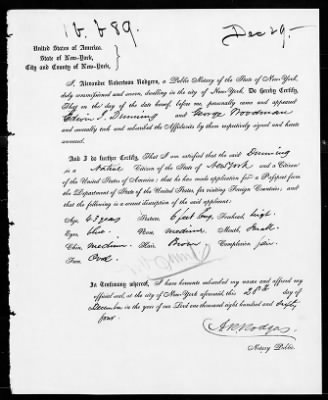 16.689.
Dec 29.-
United States of America.
State of New-York,
City and County of New-York,
I, Alexander Robertson Rodgers, a Public Notary of the State of New-York,
duly commissioned and sworn, dwelling in the city of New-York, Do hereby Certify,
That on the day of the date hereof, before me, personally came and appeared
Edwin J. Dunning and George Woodman
and severally took and subscribed the Affidavits by them respectively signed and hereto
annexed.
And I do further Certify, That I am satisfied that the said Dunning
is a Native Citizen of the State of New York and a Citizen
of the United States of America; that he has made application for a Passport from
the Department of State of the United States, for visiting Foreign Countries; and that
the following is a correct description of the said applicant:
Age, 43 years Stature, 6 feet Eng. Forehead, high
Eyes, blue Nose, medium Mouth, Small
Chin, medium Hair, Brown Complexion, fair
Face, Oval
In Testimony whereof, I have hereunto subscribed my name and affixed my
official seal, at the city of New-York aforesaid, this 28th day of
December in the year of our Lord one thousand eight hundred and sixty
four.
A R Rodgers
Notary Public.